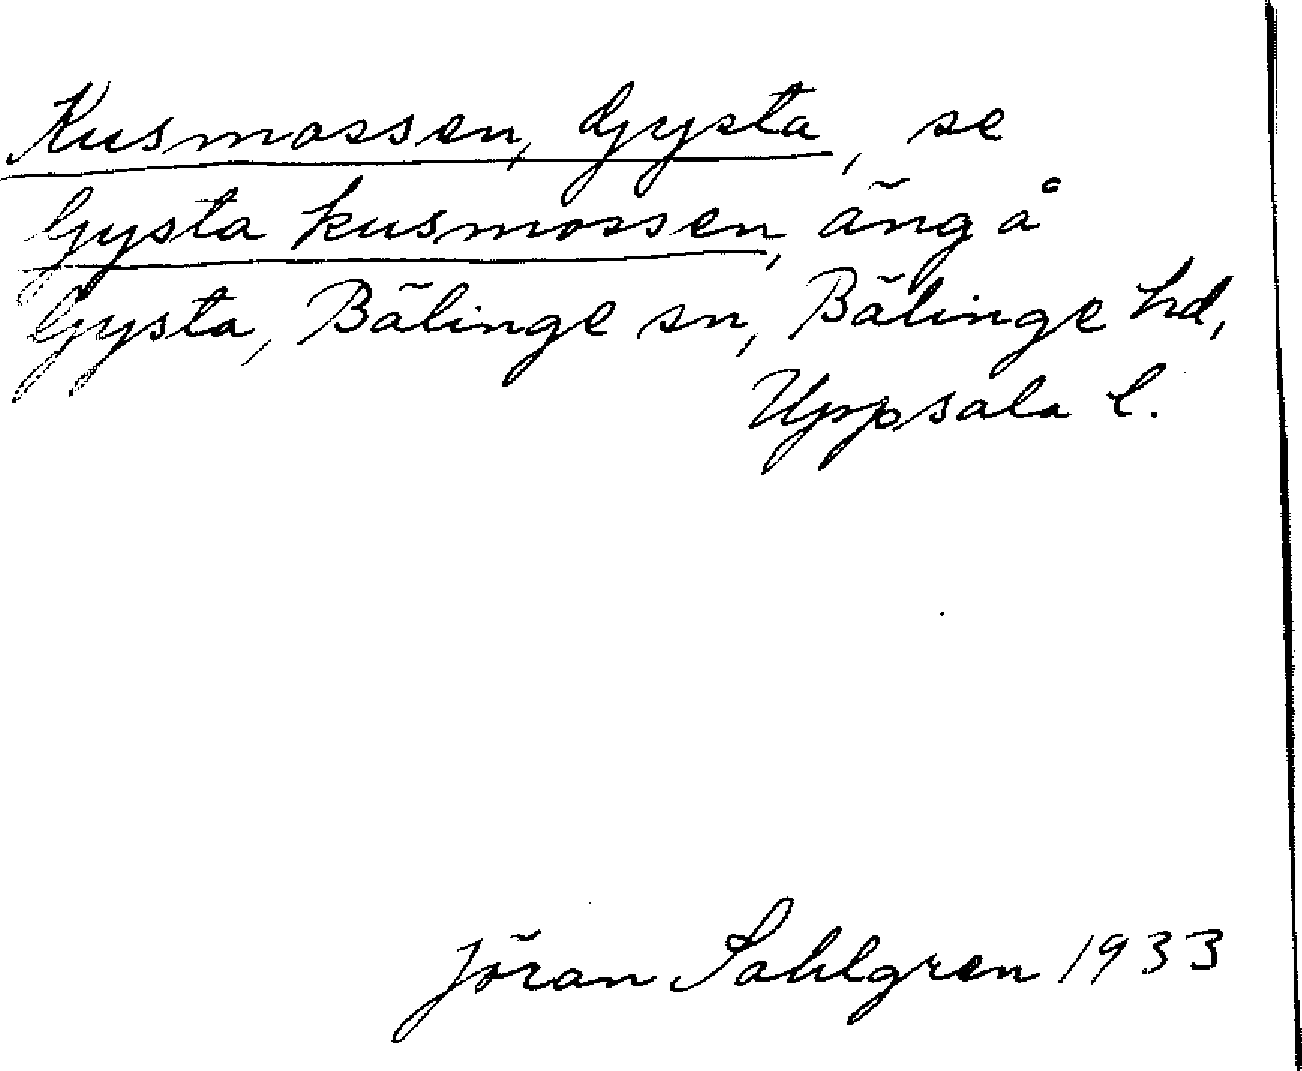 Kusmossen, Gysta, se
Gysta kusmossen, äng å
Gysta, Bälinge sn, Bälinge hd,
Uppsala l.
Jöran Sahlgren 1933